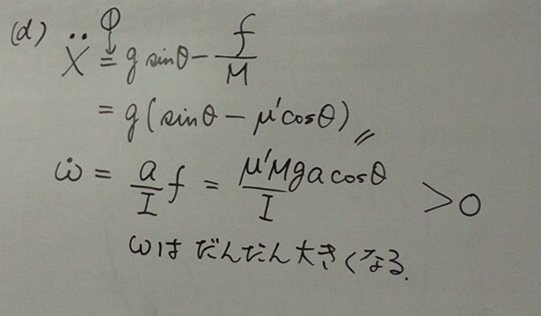 (d) Ẍ = g sinθ - f/M
①
= g(sinθ - μ'cosθ)〃
ω̇ = a/I f = μ'Mga cosθ/I > 0
ωはだんだん大きくなる.